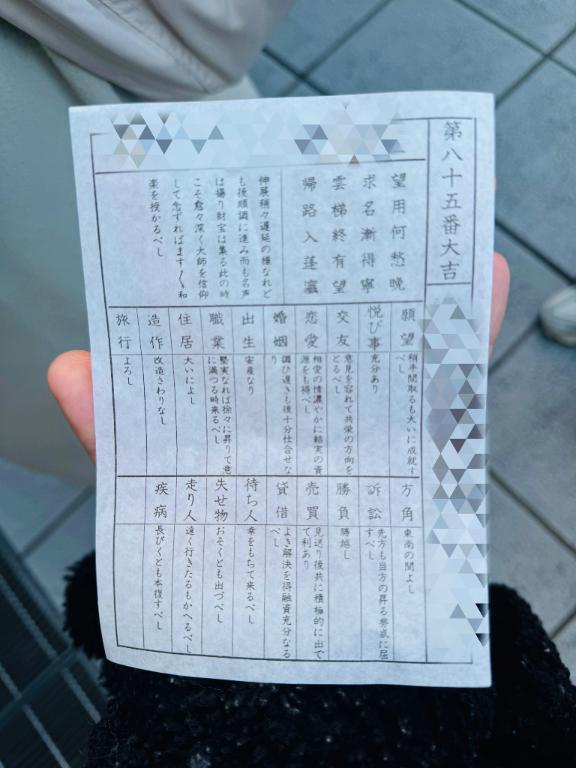 第八十五番大吉
望用何愁晩
求名漸得寧
雲梯終有望
帰路入蓬瀛
伸展稍々遅延の様なれど
も後順調に進み而も名声
は揚り財宝は集る此の時
こそ愈々深く大師を信仰
して念ずればます〱和
楽を授かるべし
願望
稍手間取るも大いに成就す
べし
悦び事
充分あり
交友
意見を容れて共栄の方向を
とるべし
恋愛
相愛の情濃やかに結実の資
源をも得べし
婚姻
調ひ遅きも後十分仕合せな
り
出生
安産なり
職業
堅実なれば徐々に昇りて意
に満つる時来るべし
住居
大いによし
造作
改造さわりなし
旅行
よろし
方角
東南の間よし
訴訟
先方も当方の昇る勢威に屈
すべし
勝負
勝越し
売買
見送り後共に積極的に出で
て利あり
貸借
よき解決を得融資充分なる
べし
待ち人
幸をもちて来るべし
失せ物
おそくとも出づべし
走り人
遠く行きたるもかへるべし
疾病
長びくとも本復すべし